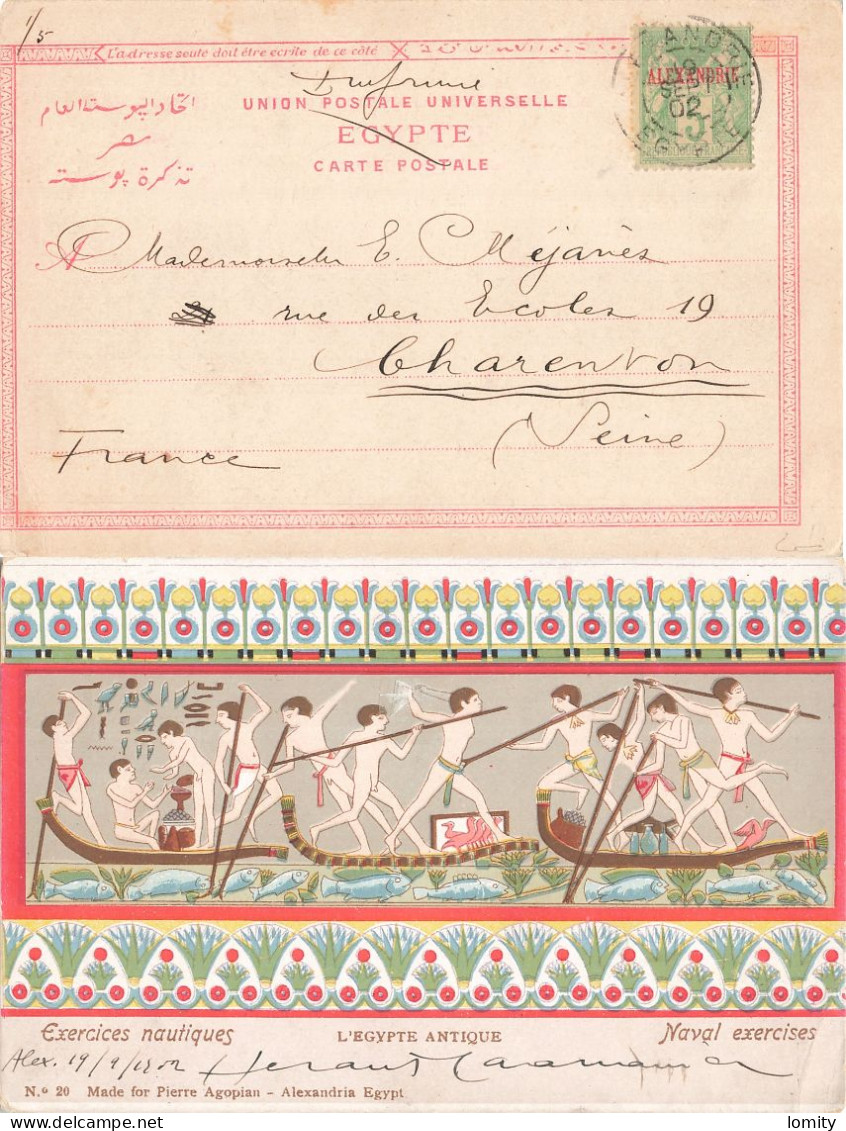 1/5
L'adresse seule doit être écrite de ce côté
Imprimé
UNION POSTALE UNIVERSELLE
EGYPTE
CARTE POSTALE
اتحاد البوسته العام
مصر
تذكرة بوسته
ALEXANDRIE
19
SEPT
02
EGYPTE
ALEXANDRIE
5
A Mademoiselle E. Méjanès
rue des Ecoles 19
Charenton
(Seine)
France
Exercices nautiques
L'EGYPTE ANTIQUE
Naval exercises
Alex. 19/9/1902
N.º 20 Made for Pierre Agopian - Alexandria Egypt
lomity